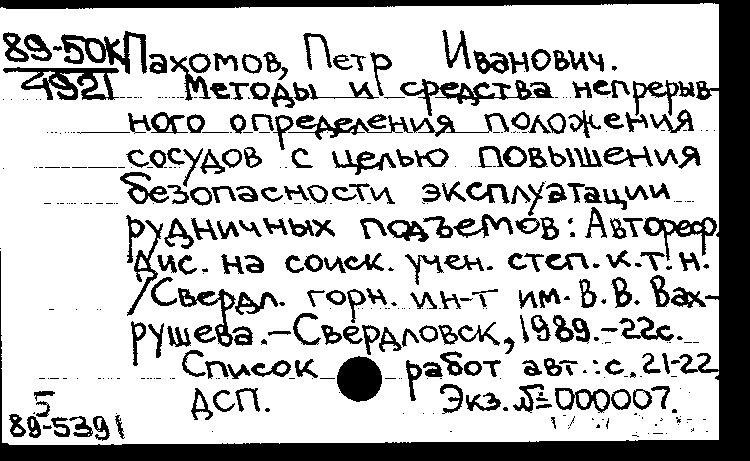 89-50К Пахомов, Петр Иванович.
4921 Методы и средства непрерыв-
ного определения положения
сосудов с целью повышения
безопасности эксплуатации
рудничных подъемов: Автореф.
Дис. на соиск. учен. степ. к.т.н.
/Свердл. горн. ин-т им. В.В. Вах-
рушева.-Свердловск, 1989.-22с.
Список работ авт.: с. 21-22
5 ДСП. Экз. № 000007.
89-5391